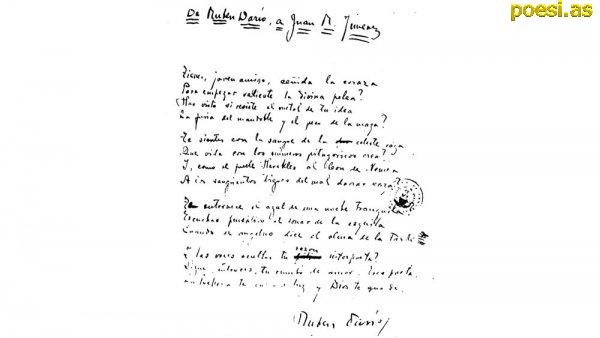 poesi.as
De Ruben Darío, a Juan R. Jimenez
Tienes, joven amigo, ceñida la coraza
Para empezar valiente la divina pelea?
Has visto si resiste el metal de tu idea
La furia del mandoble y el peso de la maza?
Te sientes con la sangre de la celeste raza
Que vida con los números pitagóricos crea?
Y, como el fuerte Herakles al león de Nemea
A los sangrientos tigres del mal darías caza?
Te enternece el azul de una noche tranquila
Escuchas pensativo el sonar de la esquila
Cuando el angelus dice el alma de la tarde
¿las voces ocultas tu razon interpreta?
Sigue, entonces, tu rumbo de amor. Eres poeta.
La belleza te cubra de luz y Dios te guarde.
Ruben Darío